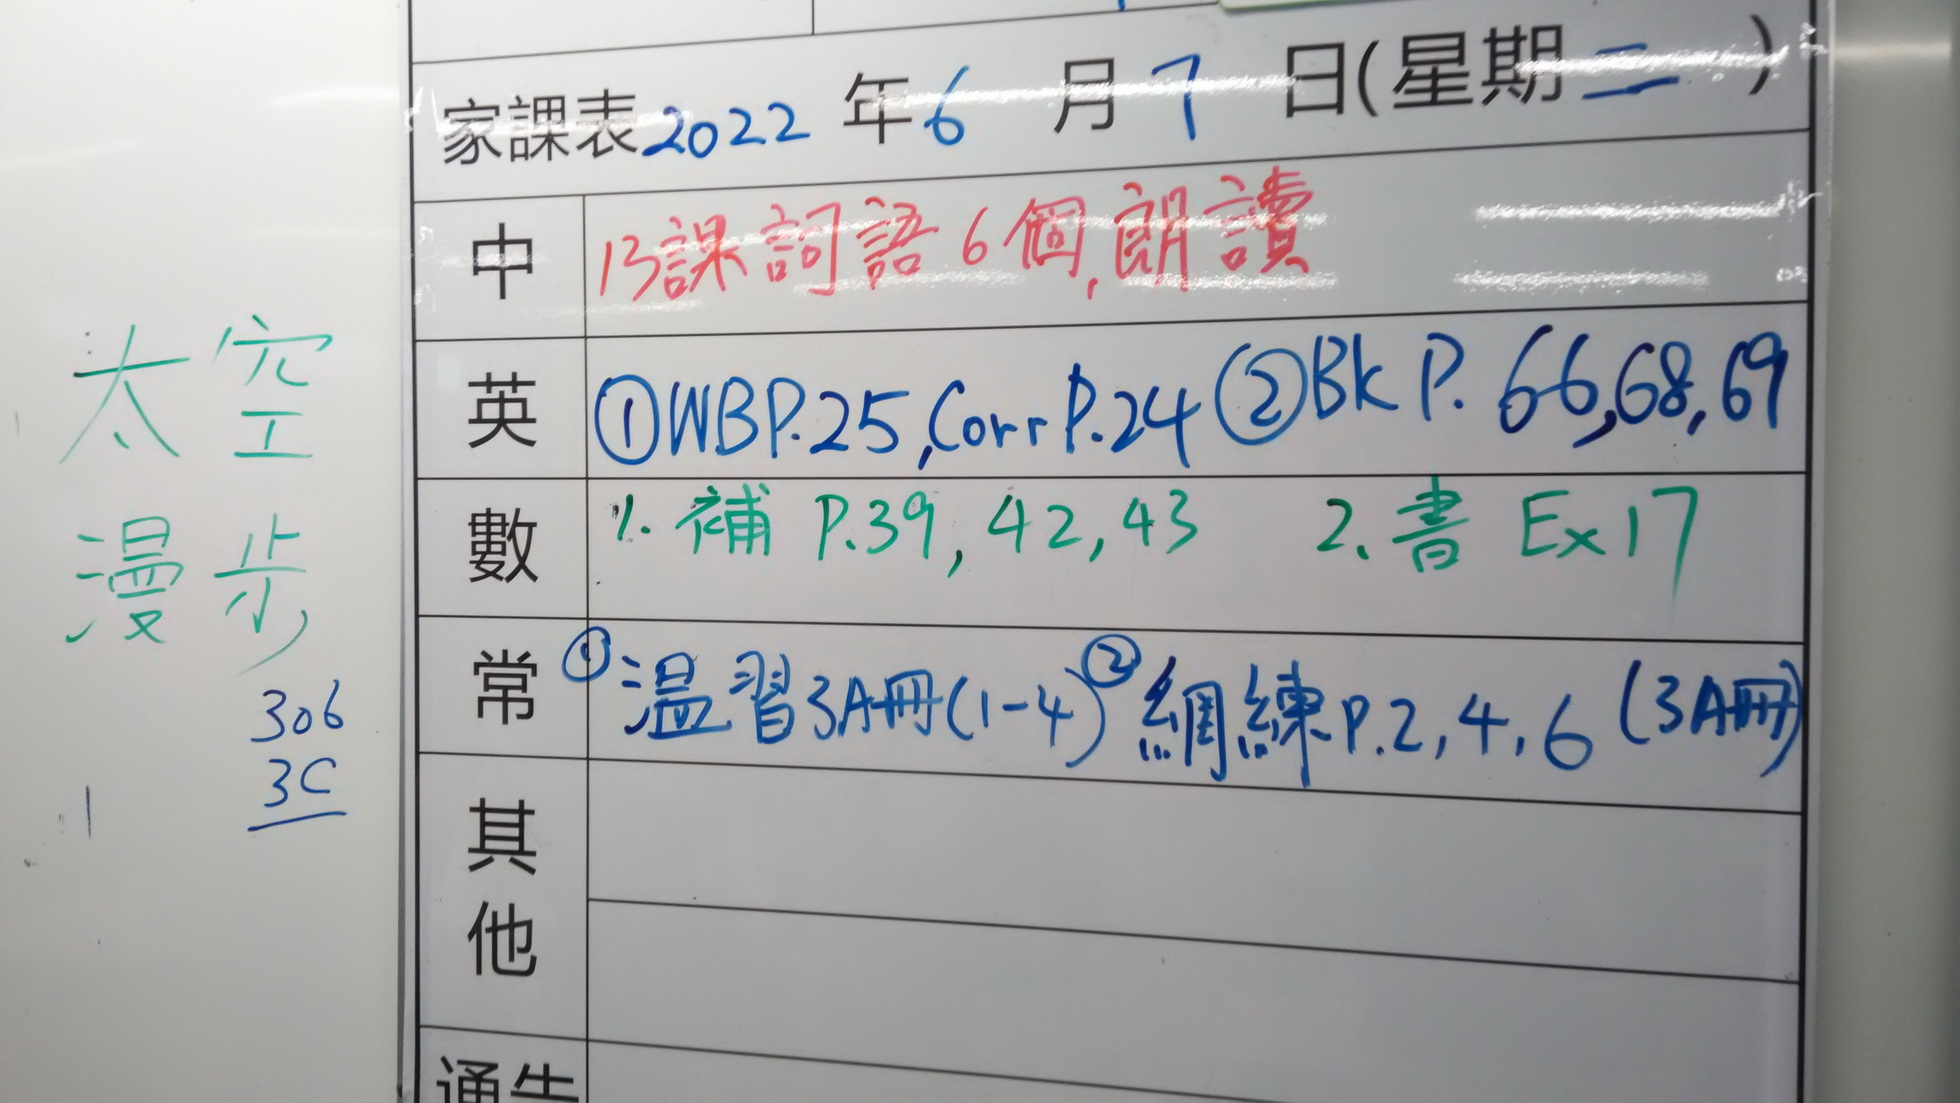 家課表2022年6月7日(星期二)
中 13課詞語6個,朗讀
英 ①WBP.25,Corr P.24 ②Bk P. 66,68,69
數 1. 補 P.39, 42,43 2. 書 Ex17
常 ①溫習3A冊(1-4) ②網練P.2,4,6 (3A冊)
其他
通告
太空
漫步
306
3C